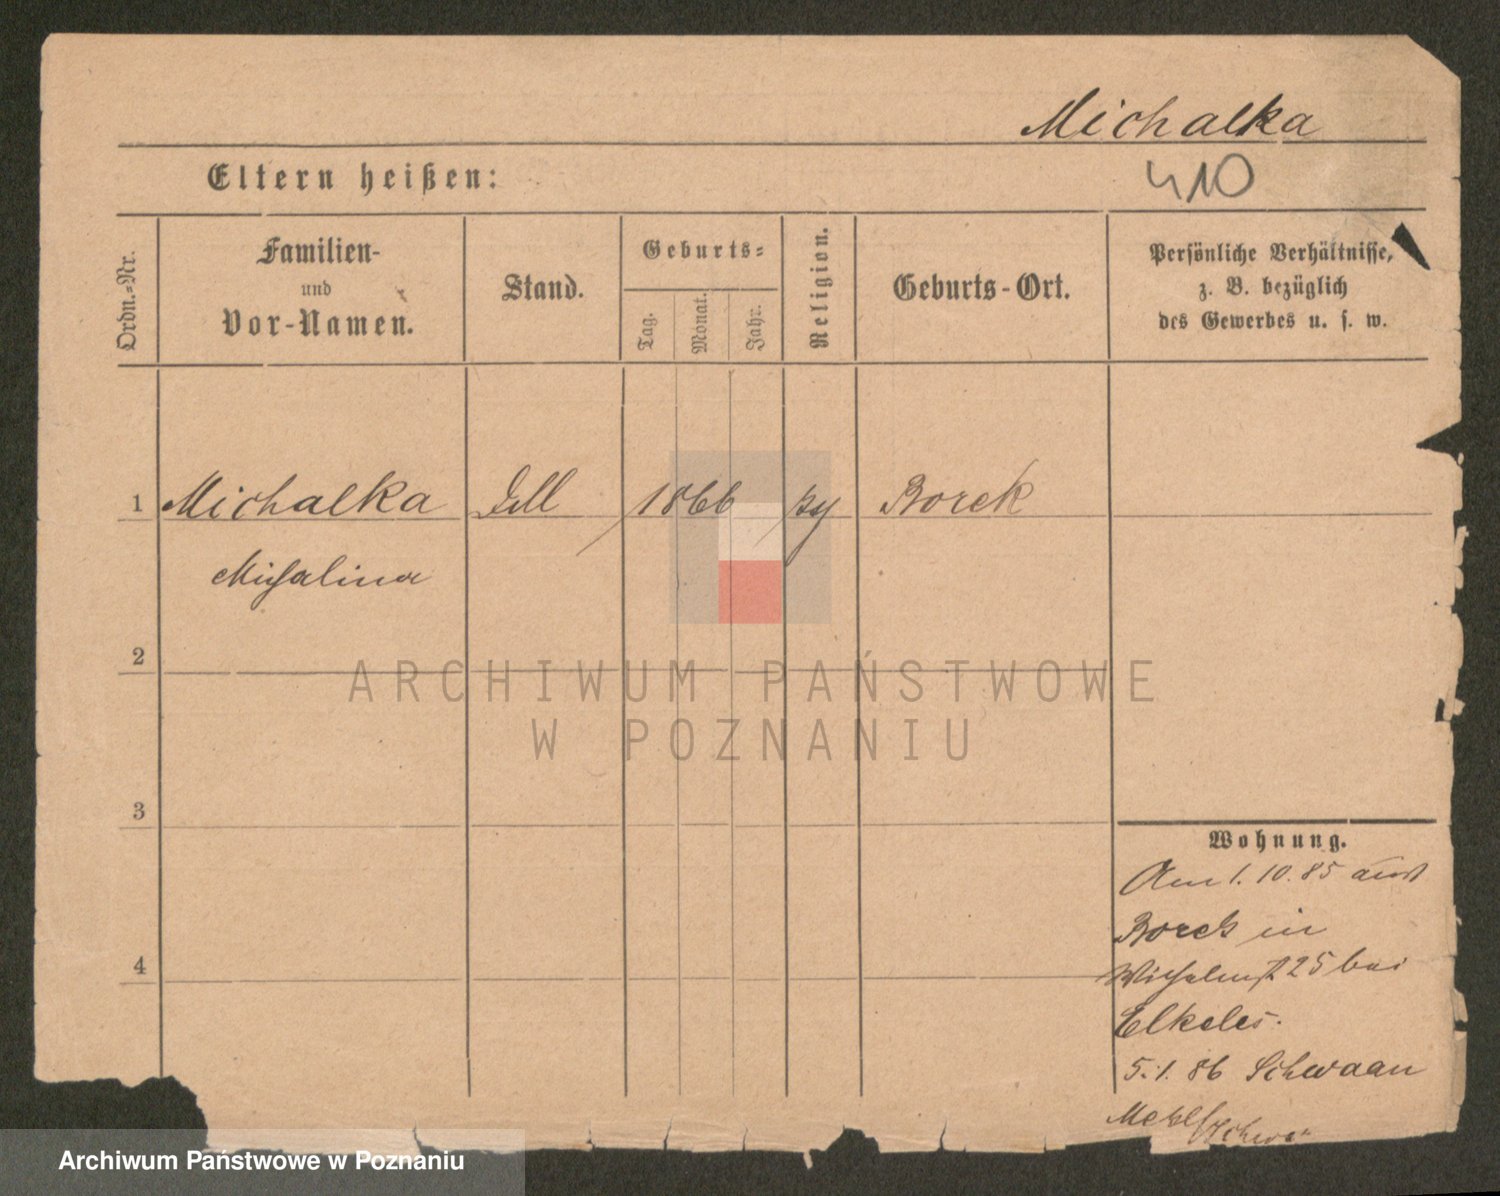 Michalka
410
Eltern heißen:
Ordn.-Nr.
Familien-
und
Vor-Namen.
Stand.
Geburts-
Tag.
Monat.
Jahr.
Religion.
Geburts-Ort.
Persönliche Verhältnisse,
z. B. bezüglich
des Gewerbes u. s. w.
1 Michalka 1866 Borek
Michalina
2
ARCHIWUM PAŃSTWOWE
W POZNANIU
3
Wohnung.
Am 1. 10. 85 aus
Borek in
Wilhelmst 25 bei
4
Elkeles.
5. 1. 86 Schwaan
Archiwum Państwowe w Poznaniu